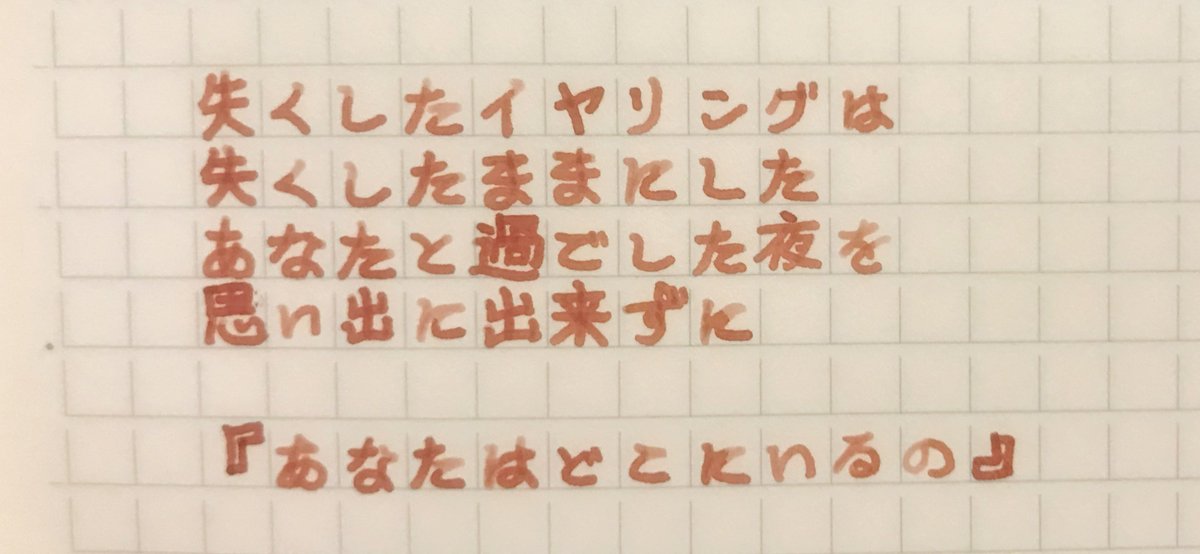 失くしたイヤリングは
失くしたままにした
あなたと過ごした夜を
思い出に出来ずに
『あなたはどこにいるの』